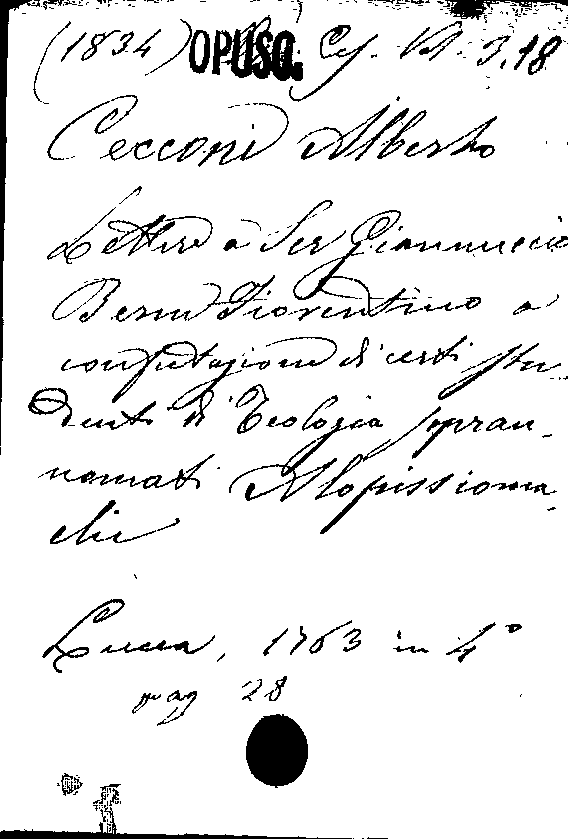 (1834) OPUSC. 3.18
Cecconi Alberto
Lettera a Ser Giannuccio
Berni Fiorentino a
confutazione di certi stu-
denti di Teologia sopran-
nomati Alopissioma-
chi
Lucca, 1763 in 4°
pag 28